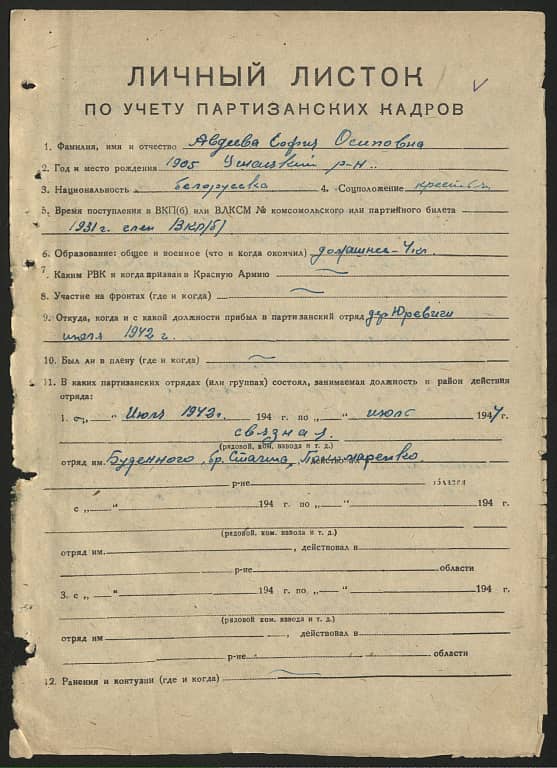 ЛИЧНЫЙ ЛИСТОК
ПО УЧЕТУ ПАРТИЗАНСКИХ КАДРОВ
1. Фамилия, имя и отчество Авдеева София Осиповна
2. Год и место рождения 1905 Ушацкий р-н.
3. Национальность белорусска 4. Соцположение
5. Время поступления в ВКП(б) или ВЛКСМ № комсомольского или партийного билета
1931 г. член ВКП(б)
6. Образование: общее и военное (что и когда окончил) домашнее - 4 кл.
7. Каким РВК и когда призван в Красную Армию
8. Участие на фронтах (где и когда)
9. Откуда, когда и с какой должности прибыл в партизанский отряд дер Юревичи
июля 1942 г.
10. Был ли в плену (где и когда)
11. В каких партизанских отрядах (или группах) состоял, занимаемая должность и район действия
отряда:
1. с „ “ Июля 1942 г. 194 г. по „ “ июль 1944 г.
связная
(рядовой, ком. взвода и т. д.)
отряд им. Буденного, бр. Сталина, Пономаренко, действовал
р-не области
с „ “ 194 г. по „ “ 194 г.
(рядовой, ком. взвода и т. д.)
отряд им. , действовал в
р-не области
3. с „ “ 194 г. по „ “ 194 г.
(рядовой ком. взвода и т. д.)
отряд им , действовал в
р-не области
12. Ранения и контузии (где и когда)